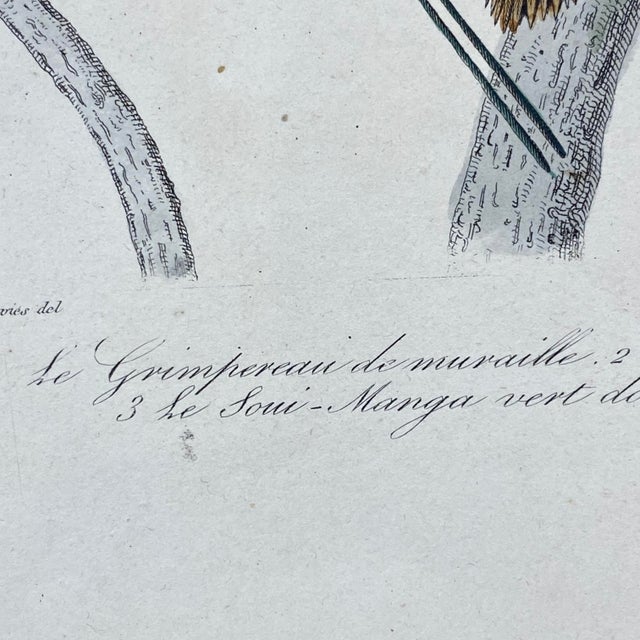 vies del
Le Grimpereau de muraille. 2
3 Le Soui-Manga vert do